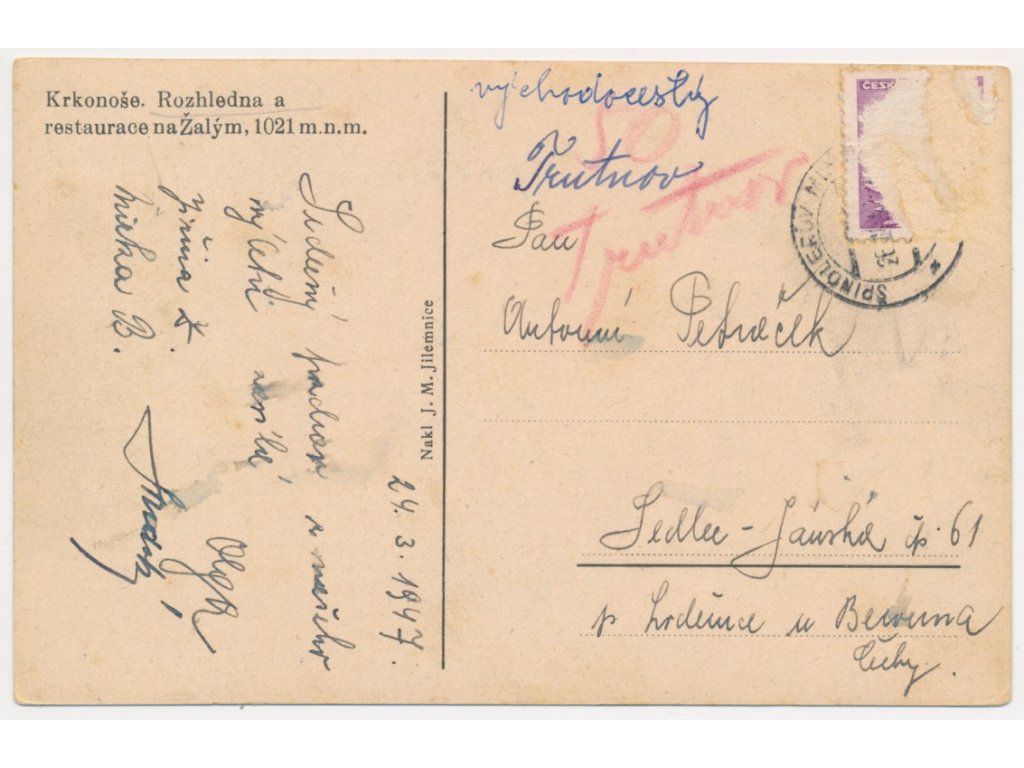 Krkonoše. Rozhledna a
restaurace na Žalým, 1021 m.n.m.
Srdečný pozdrav z našeho
výletu zasílá
Olga
Jiřina
Mirka B.
24. 3. 1947.
Nakl J. M. Jilemnice
východočeský
Trutnov
50
Trutnov
Pan
Antonín Petráček
Sedlec - Jánská čp. 61
p. Loděnice u Berouna
Čechy.
ČESK
ŠPINDLERŮV